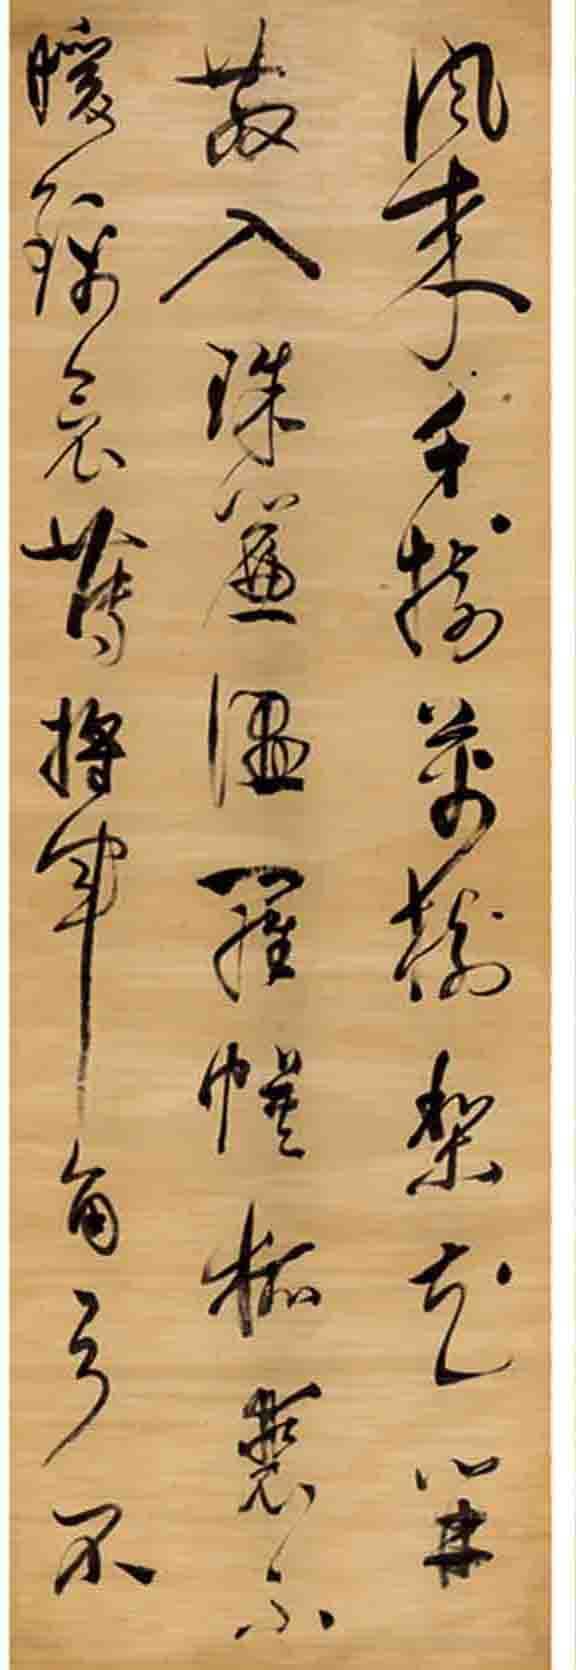 風来千樹萬樹梨花開
散入珠簾濕羅幙狐裘不
暖錦衾薄將軍角弓不